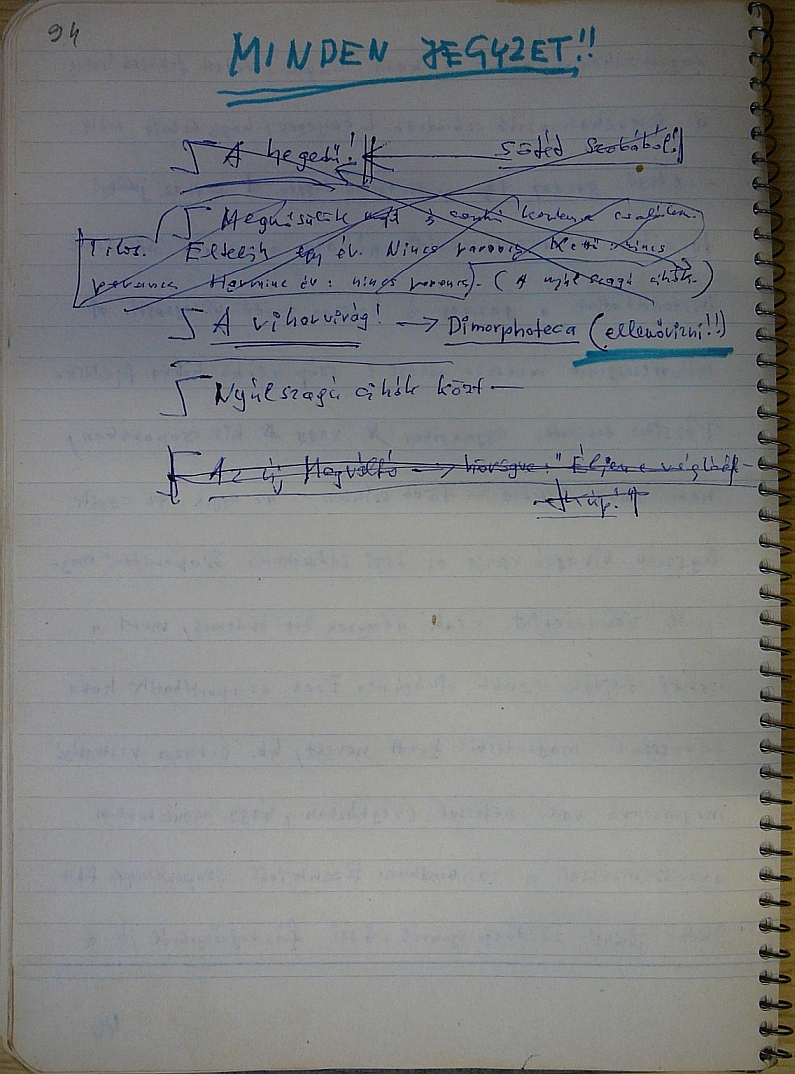 94
MINDEN JEGYZET!!
A hegedű! ← sötéd szobából!
Megnősülök majd is
Tilos. Eltelik egy év. Nincs parancs. Kettő: nincs
parancs. Harminc év: nincs parancs. (A nyúlszagú cihák.)
A viharvirág! → Dimorphoteca (ellenőrizni!!)
Nyúlszagú cihák közt —
Az új Megváltó → hörögve: "Éljen a végbél-
kúp!"